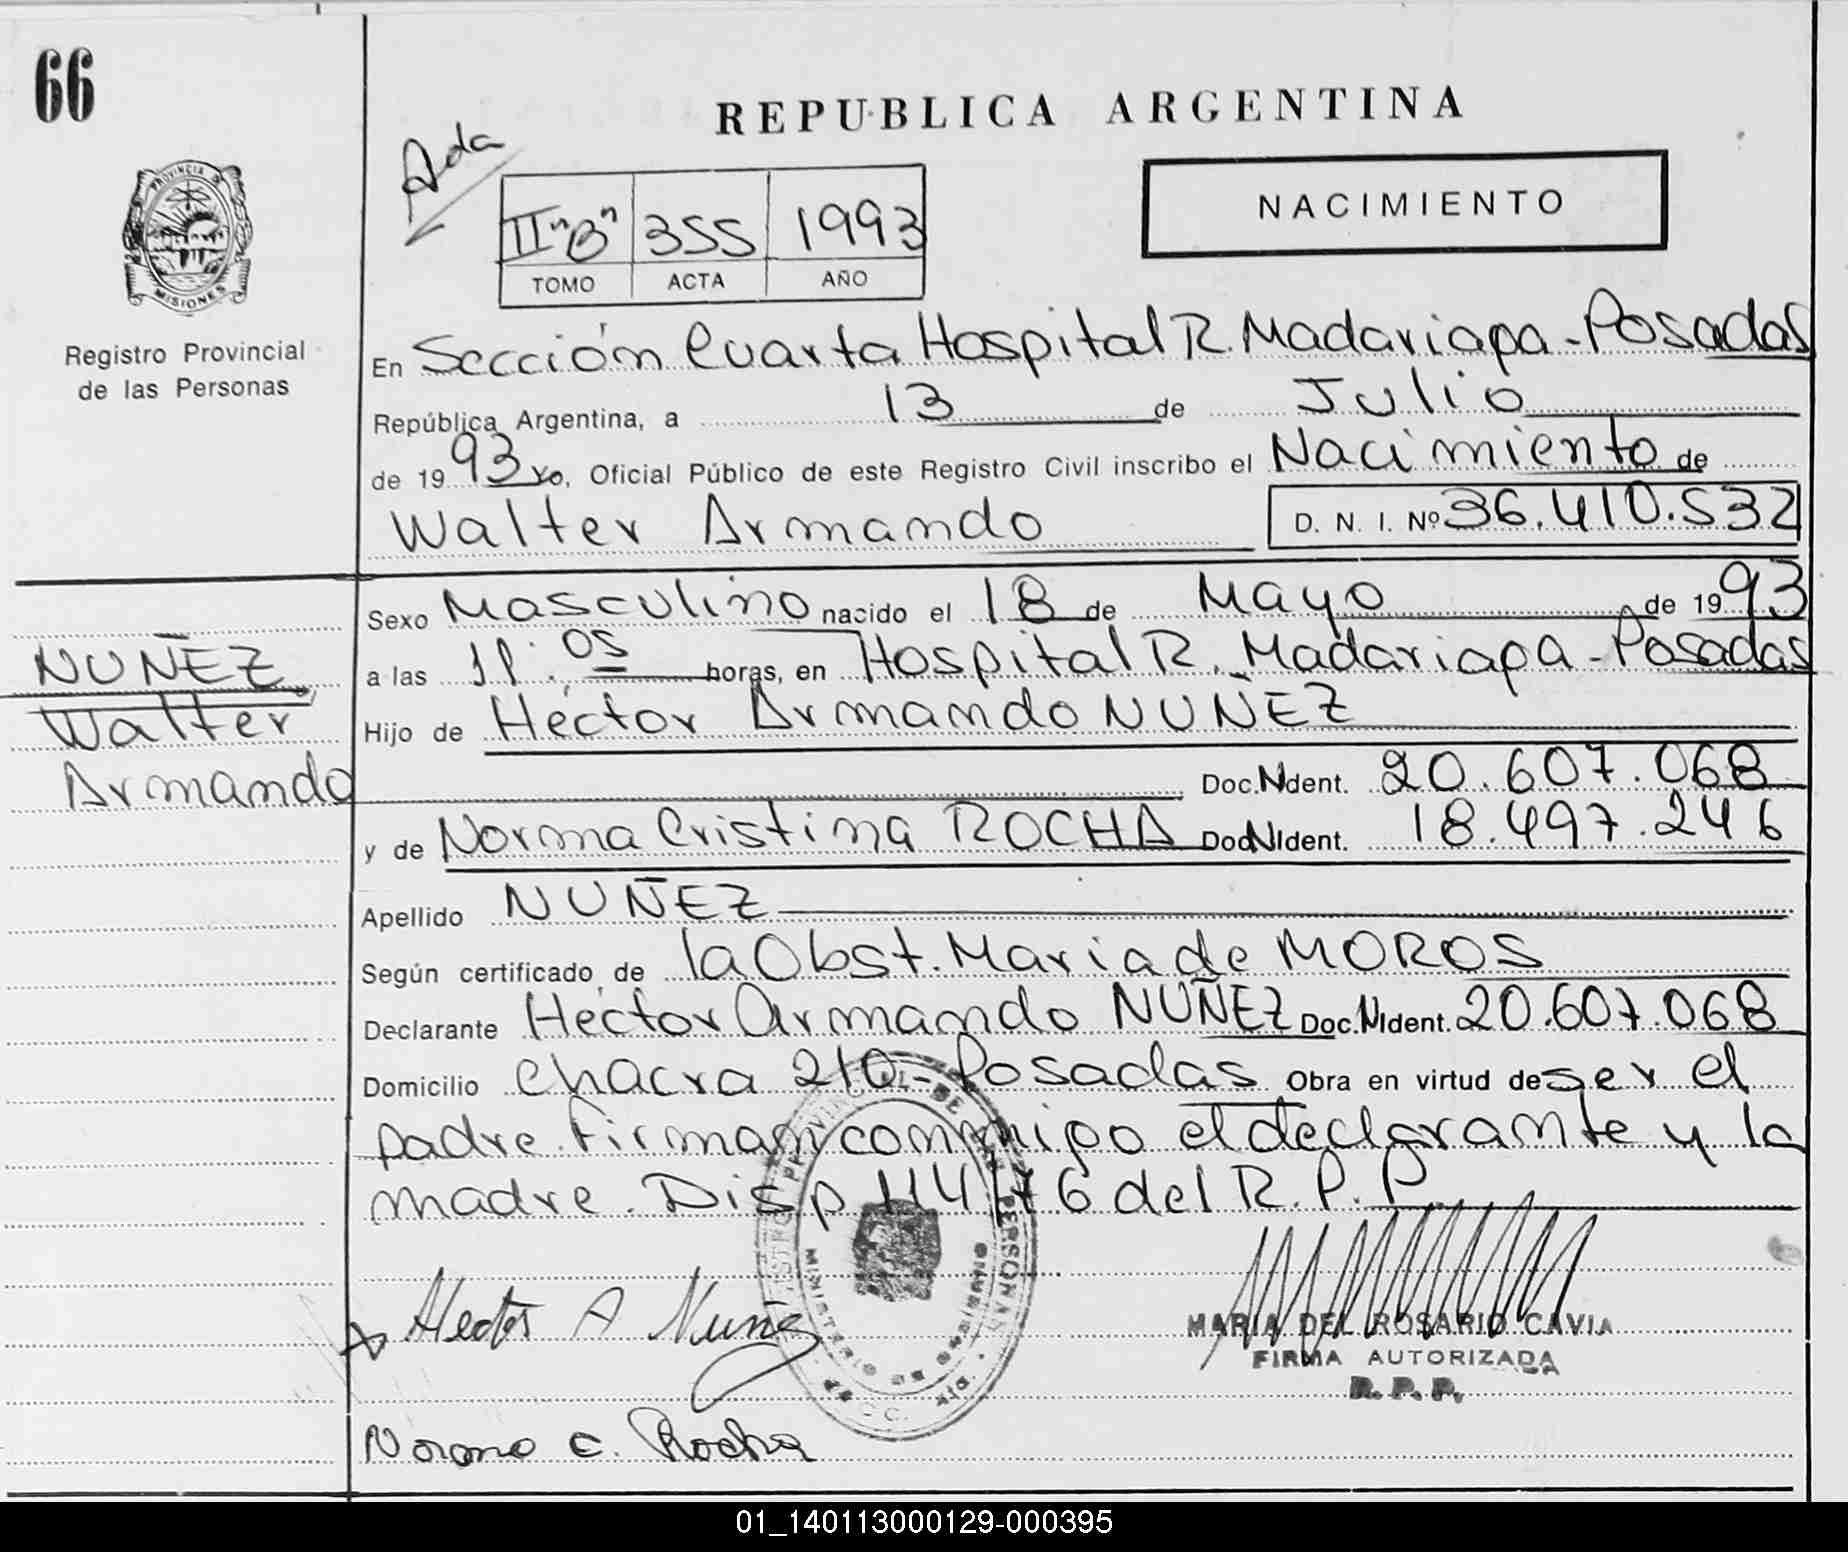 66
REPUBLICA ARGENTINA
Adda
PROVINCIA D
MISIONES
Registro Provincial
de las Personas
NACIMIENTO
II "B" 355 1993
TOMO ACTA AÑO
En Sección Cuarta Hospital R. Madariaga - Posadas
República Argentina, a 13 de Julio
de 1993 yo, Oficial Público de este Registro Civil inscribo el Nacimiento de
Walter Armando D. N. I. Nº 36.410.532
Sexo Masculino nacido el 18 de Mayo de 1993
a las 11:05 horas, en Hospital R. Madariaga - Posadas
NUÑEZ
Walter
Armando
Hijo de Héctor Armando NUÑEZ
Doc.NIdent. 20.607.068
y de Norma Cristina ROCHA Doc.NIdent. 18.497.246
Apellido NUÑEZ
Según certificado de la Obst. Maria de MOROS
Declarante Héctor Armando NUÑEZ Doc.NIdent. 20.607.068
Domicilio Chacra 210 - Posadas Obra en virtud de ser el
padre. Firman conmigo el declarante y la
madre. Disp 114/76 del R. P. P.
Hector A Nuñez
MARIA DEL ROSARIO CAVIA
FIRMA AUTORIZADA
R. P. P.
Norma C. Rocha
01_140113000129-000395